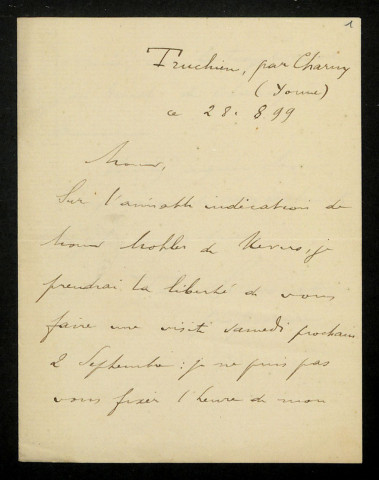 1
Truchien, par Charny
(Yonne)
ce 28. 8 99
Monsr,
Sur l'aimable indication de
Monsr Mohler de Nevers, je
prendrai la liberté de vous
faire une visite samedi prochain
2 Septembre : je ne puis pas
vous fixer l'heure de mon